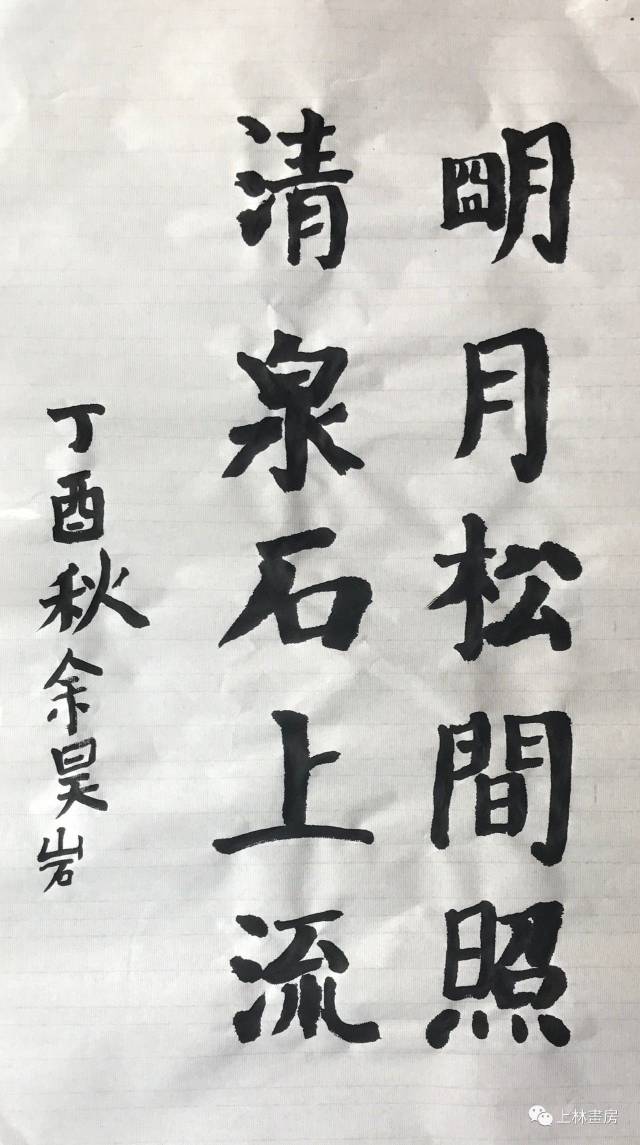 明月松間照
清泉石上流
丁酉秋余昊岩
上林書房